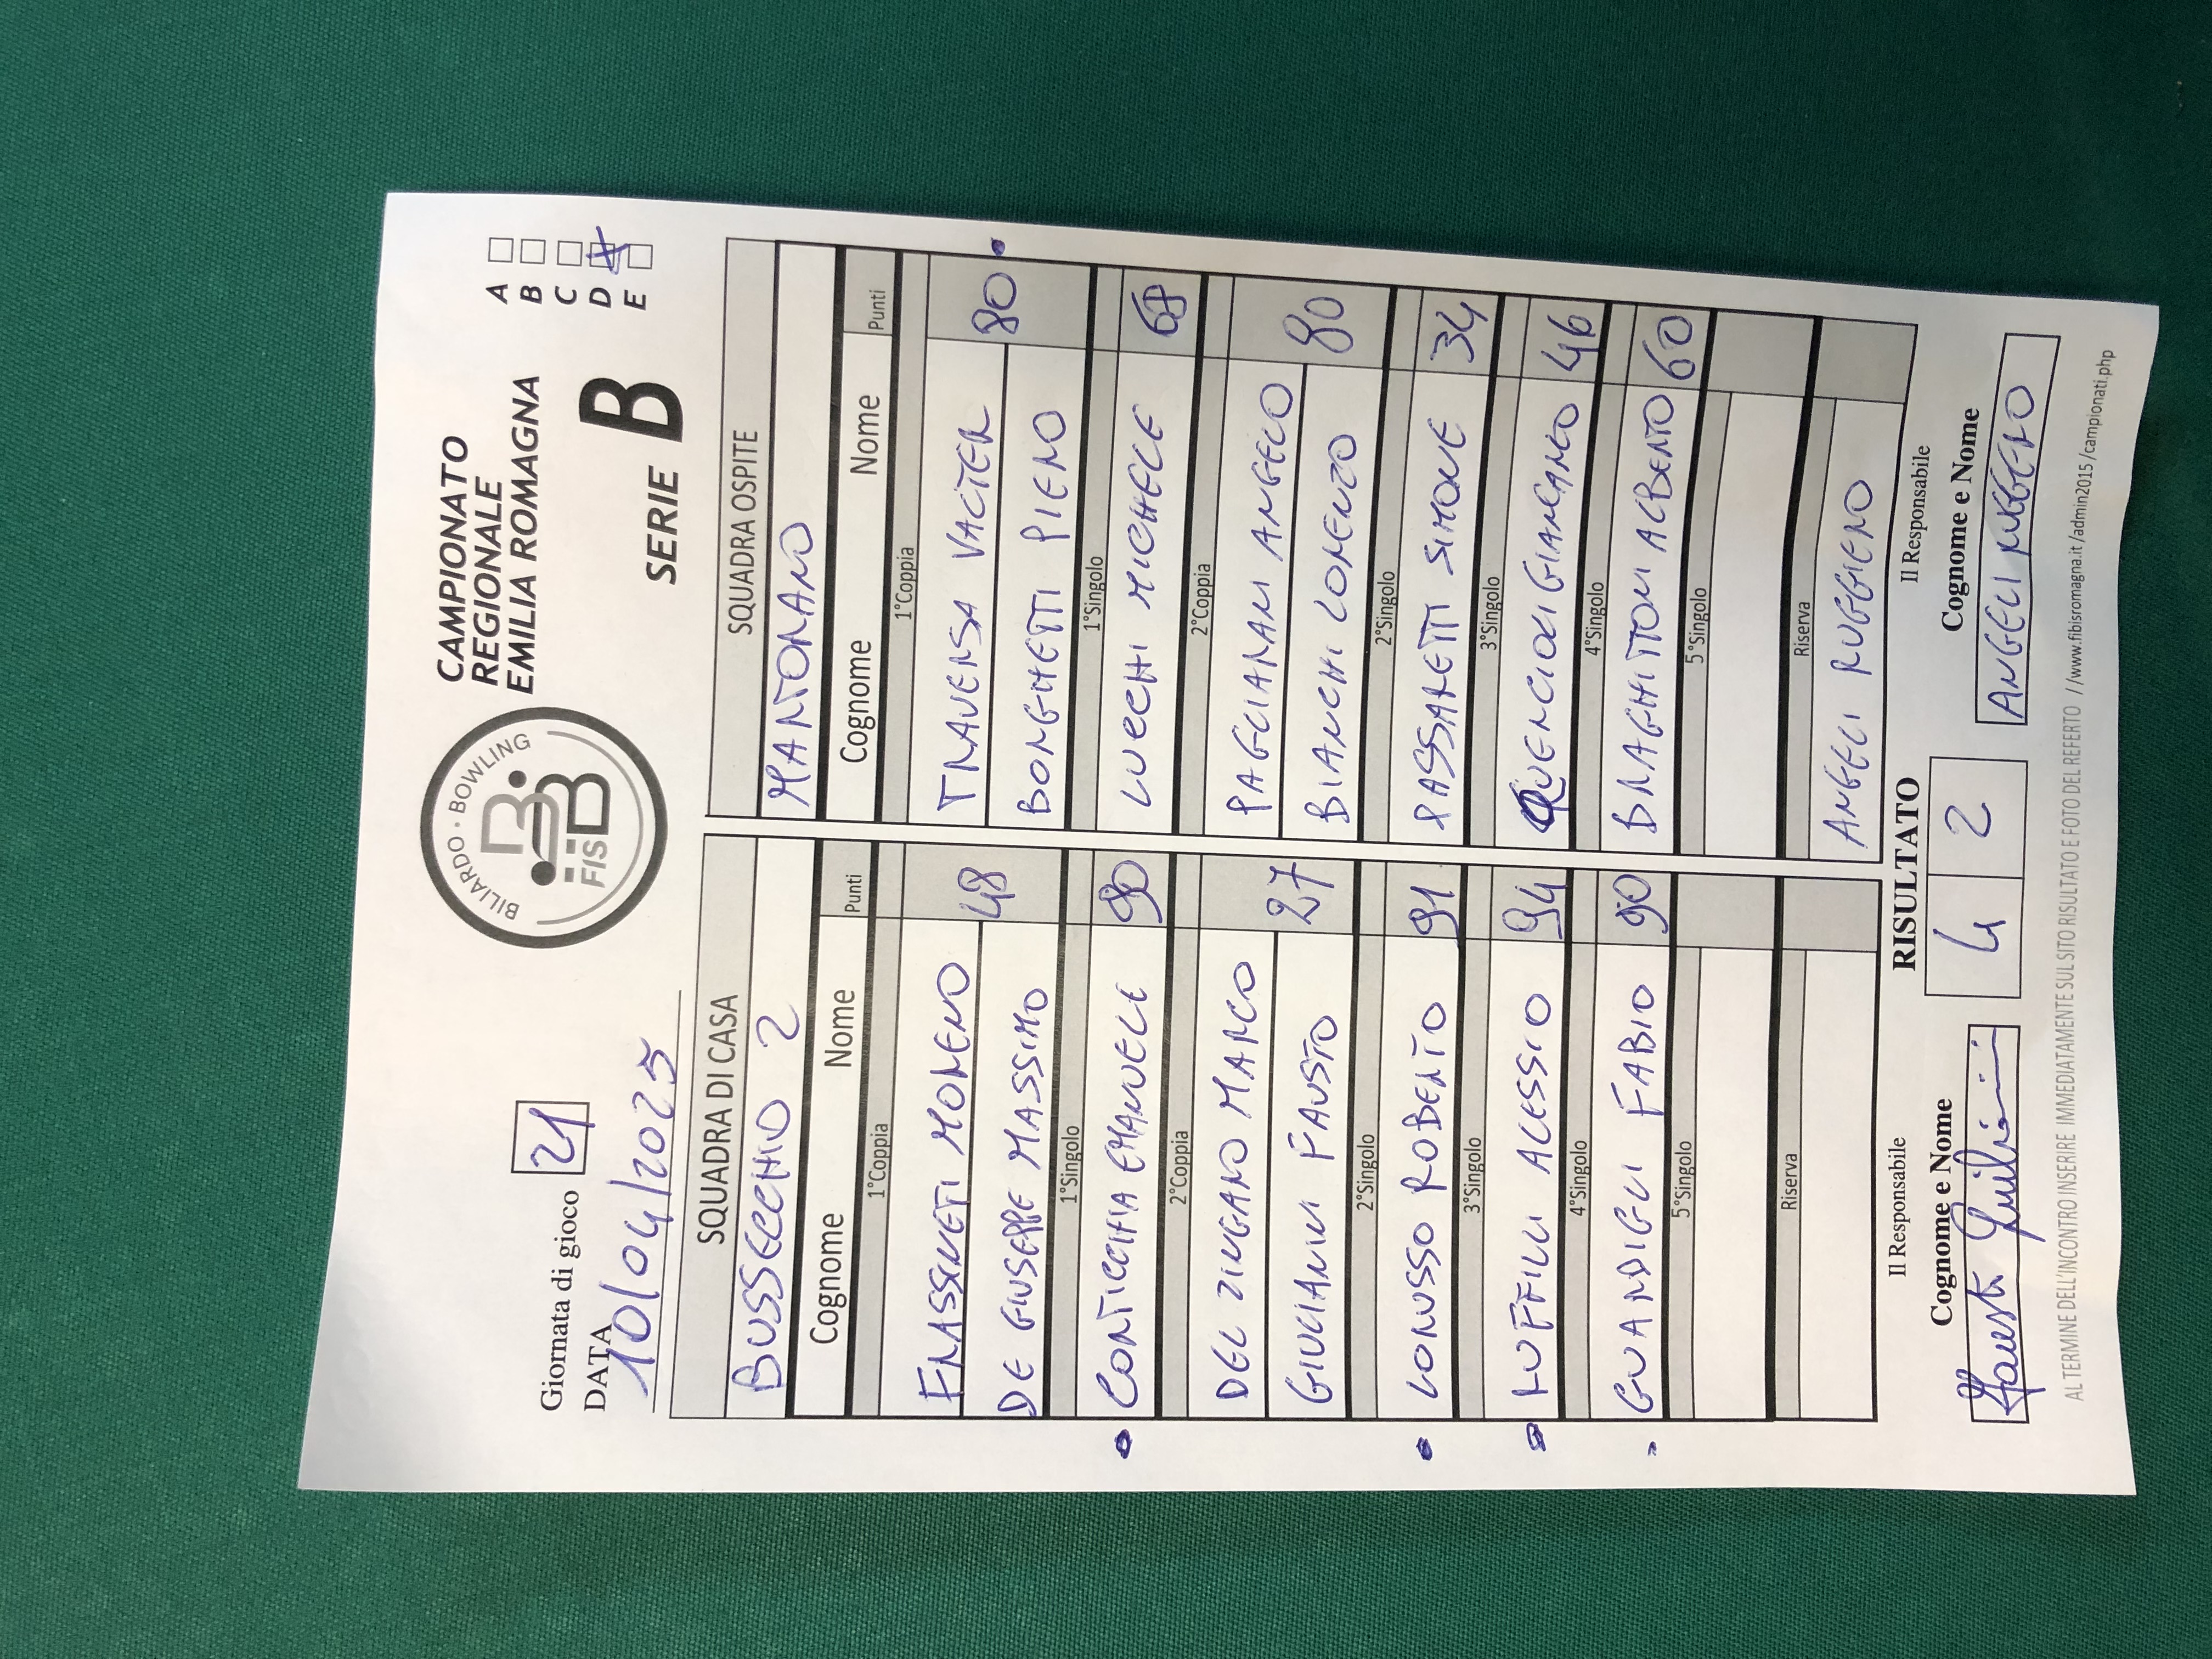 Giornata di gioco 21
DATA
10/04/2025
BILIARDO · BOWLING
FISBB
CAMPIONATO
REGIONALE
EMILIA ROMAGNA
SERIE B
A
B
C
D X
E
SQUADRA DI CASA
BUSSECCHIO 2
Cognome Nome Punti
1°Coppia
FRASSINETI MORENO
DE GIUSEPPE MASSIMO
48
1°Singolo
CONTICCHIA EMANUELE 90
2°Coppia
DEL ZINGARO MARCO
GIULIANI FAUSTO
27
2°Singolo
LORUSSO ROBERTO 91
3°Singolo
RUFFILLI ALESSIO 94
4°Singolo
GUARDIGLI FABIO 90
5°Singolo
Riserva
SQUADRA OSPITE
MARTORANO
Cognome Nome Punti
1°Coppia
TRAVERSA VALTER
BORGHETTI PIERO
80
1°Singolo
LUCCHI MICHELE 68
2°Coppia
PAGLIARANI ANGELO
BIANCHI LORENZO
80
2°Singolo
PASSARETTI SIMONE 34
3°Singolo
QUERCIOLI GIANCARLO 46
4°Singolo
BRAGHITTONI ALBERTO 60
5°Singolo
Riserva
ANGELI RUGGERO
Il Responsabile
Cognome e Nome
Fausto Giuliani
RISULTATO
4 2
Il Responsabile
Cognome e Nome
ANGELI RUGGERO
AL TERMINE DELL'INCONTRO INSERIRE IMMEDIATAMENTE SUL SITO RISULTATO E FOTO DEL REFERTO //www.fibisromagna.it/admin2015/campionati.php